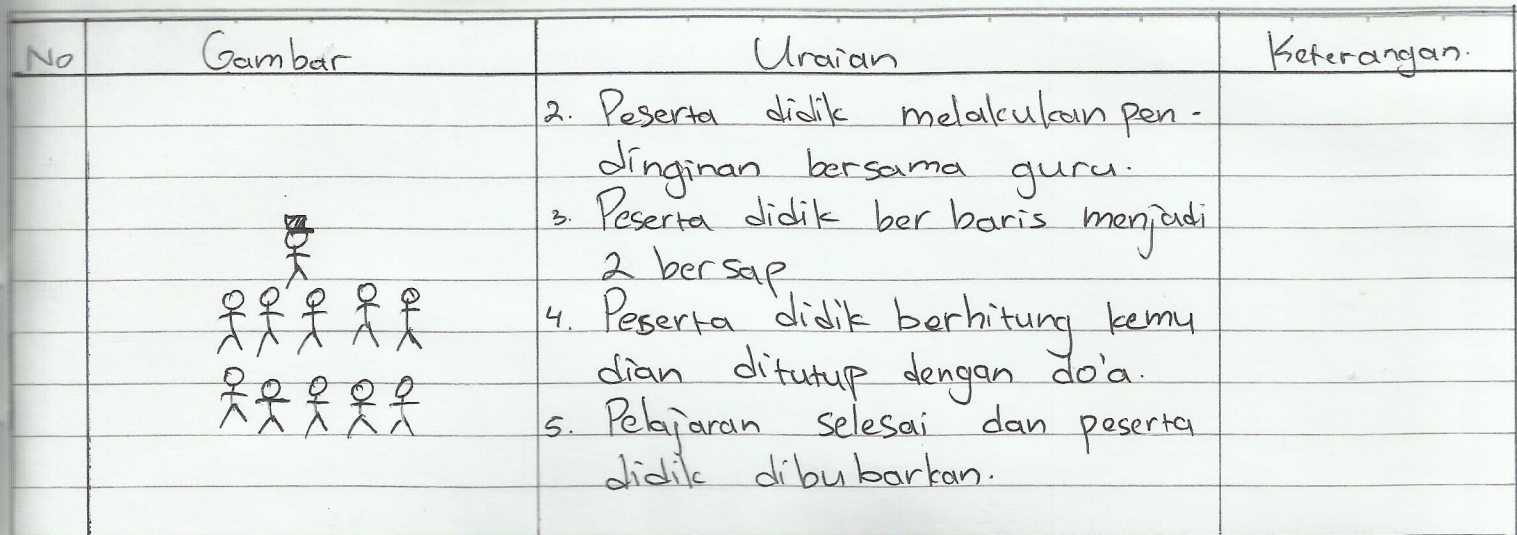 No Gambar Uraian Keterangan.
2. Peserta didik melakukan pen-
dinginan bersama guru.
3. Peserta didik ber baris menjadi
2 bersap
4. Peserta didik berhitung kemu
dian ditutup dengan do'a.
5. Pelajaran selesai dan peserta
didik dibubarkan.